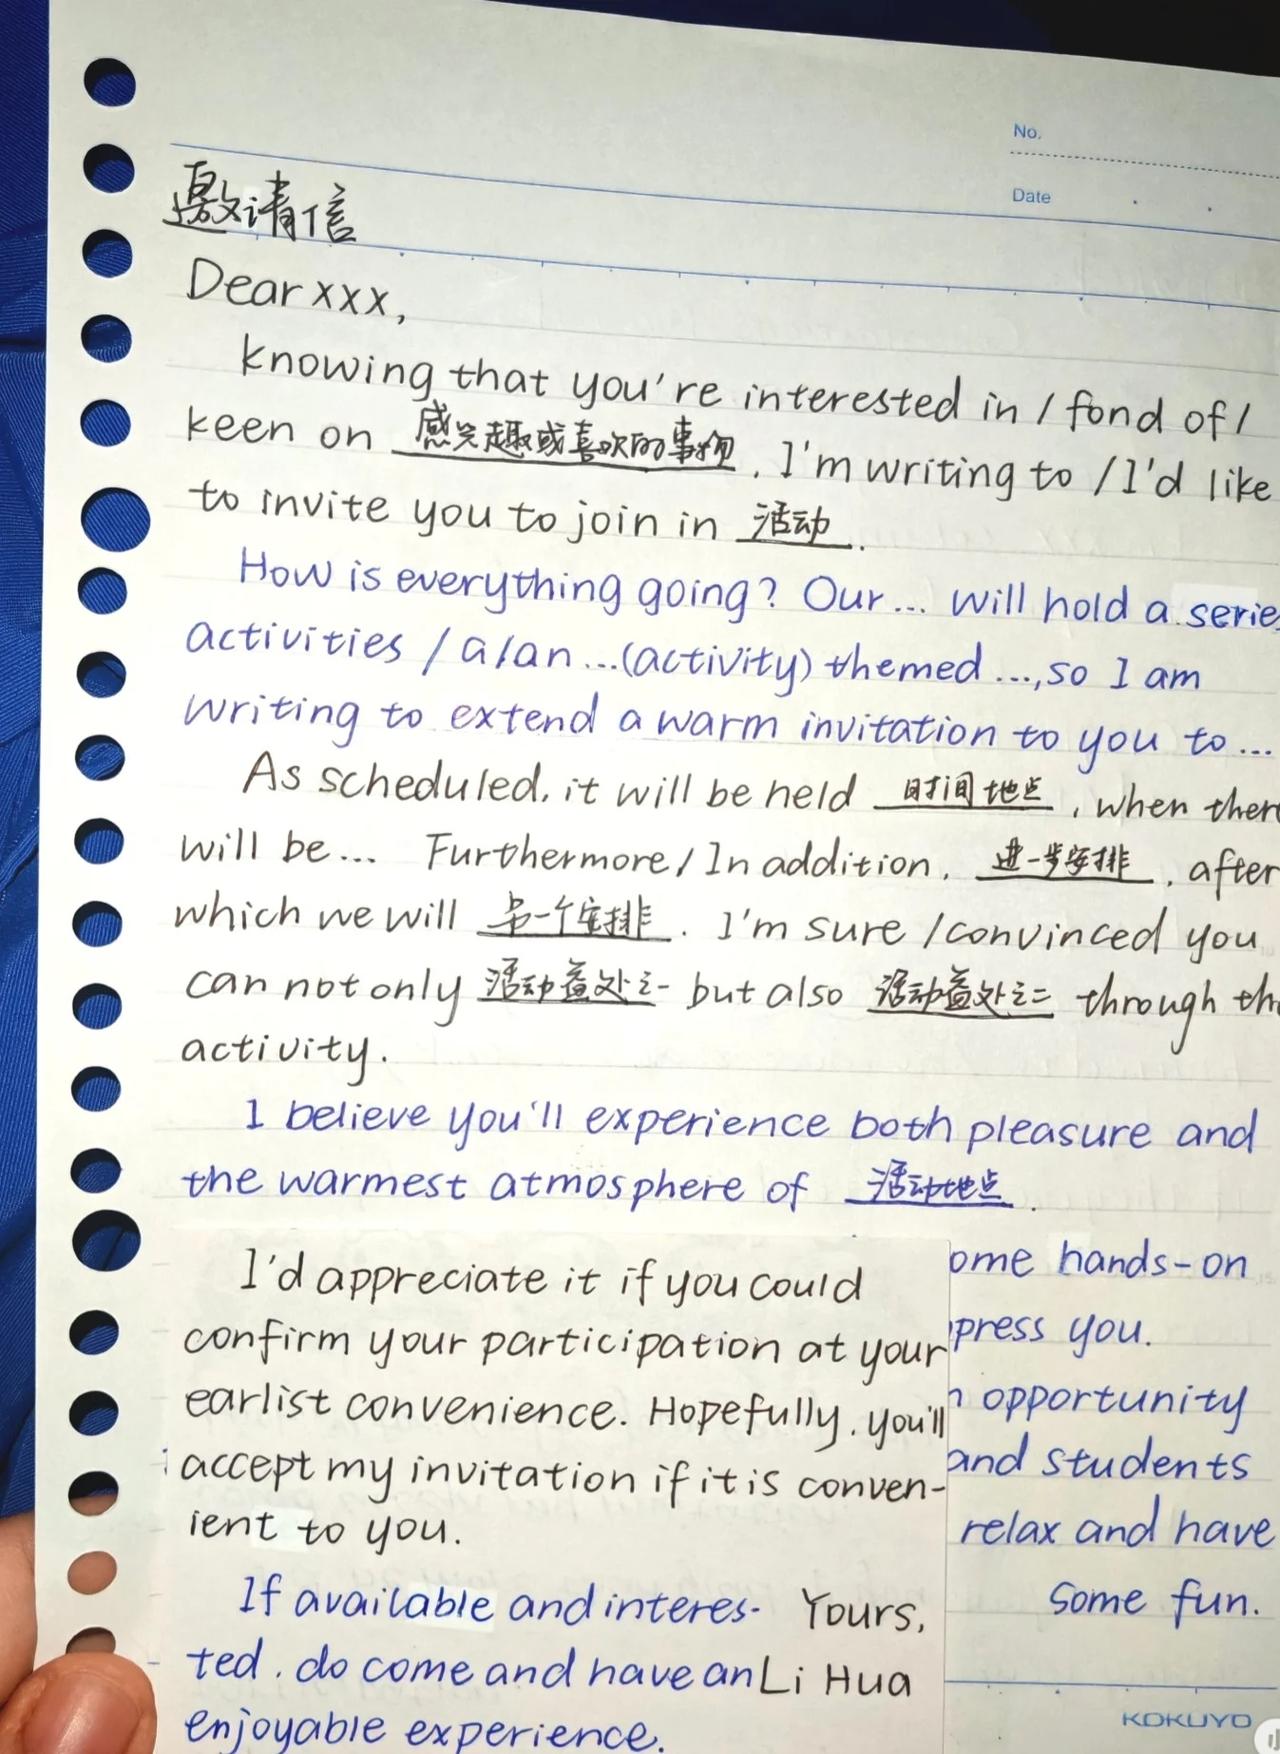 No.
Date
邀请信
Dear xxx,
knowing that you're interested in / fond of /
keen on 感兴趣或喜欢的事物, I'm writing to / I'd like
to invite you to join in 活动.
How is everything going? Our... will hold a serie
activities / a/an ...(activity) themed ..., so I am
writing to extend a warm invitation to you to ...
As scheduled, it will be held 时间地点, when ther
will be ... Furthermore / In addition, 进一步安排, after
which we will 另一个安排. I'm sure / convinced you
can not only 活动益处之一 but also 活动益处之二 through th
activity.
I believe you'll experience both pleasure and
the warmest atmosphere of 活动地点.
I'd appreciate it if you could
confirm your participation at your
earlist convenience. Hopefully, you'll
accept my invitation if it is conven-
ient to you.
If available and interes-
ted, do come and have an
enjoyable experience.
Yours,
Li Hua
ome hands-on
press you.
opportunity
and students
relax and have
some fun.
KOKUYO